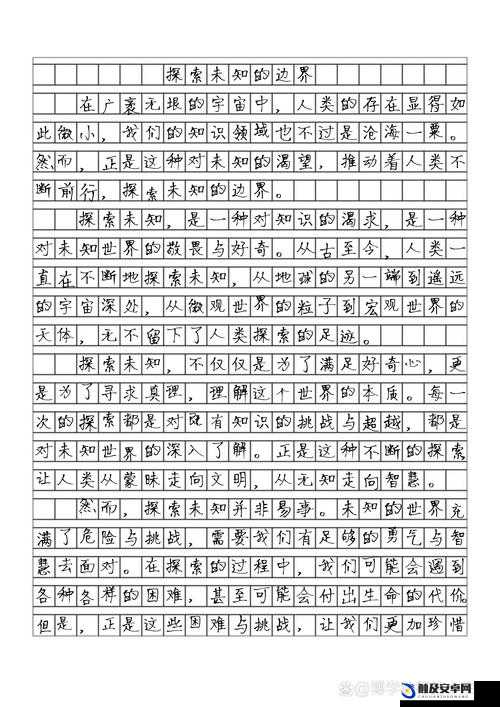 探索未知的边界
在广袤无垠的宇宙中，人类的存在显得如
此微小，我们的知识领域也不过是沧海一粟。
然而，正是这种对未知的渴望，推动着人类不
断前行，探索未知的边界。
探索未知，是一种对知识的渴求，是一种
对未知世界的敬畏与好奇。从古至今，人类一
直在不断地探索未知，从地球的另一端到遥远
的宇宙深处，从微观世界的粒子到宏观世界的
天体，无不留下了人类探索的足迹。
探索未知，不仅仅是为了满足好奇心，更
是为了寻求真理，理解这个世界的本质。每一
次的探索都是对既有知识的挑战与超越，都是
对未知世界的深入了解。正是这种不断的探索
让人类从蒙昧走向文明，从无知走向智慧。
然而，探索未知并非易事。未知的世界充
满了危险与挑战，需要我们有足够的勇气与智
慧去面对。在探索的过程中，我们可能会遇到
各种各样的困难，甚至可能会付出生命的代价。
但是，正是这些困难与挑战，让我们更加珍惜
触及安卓网